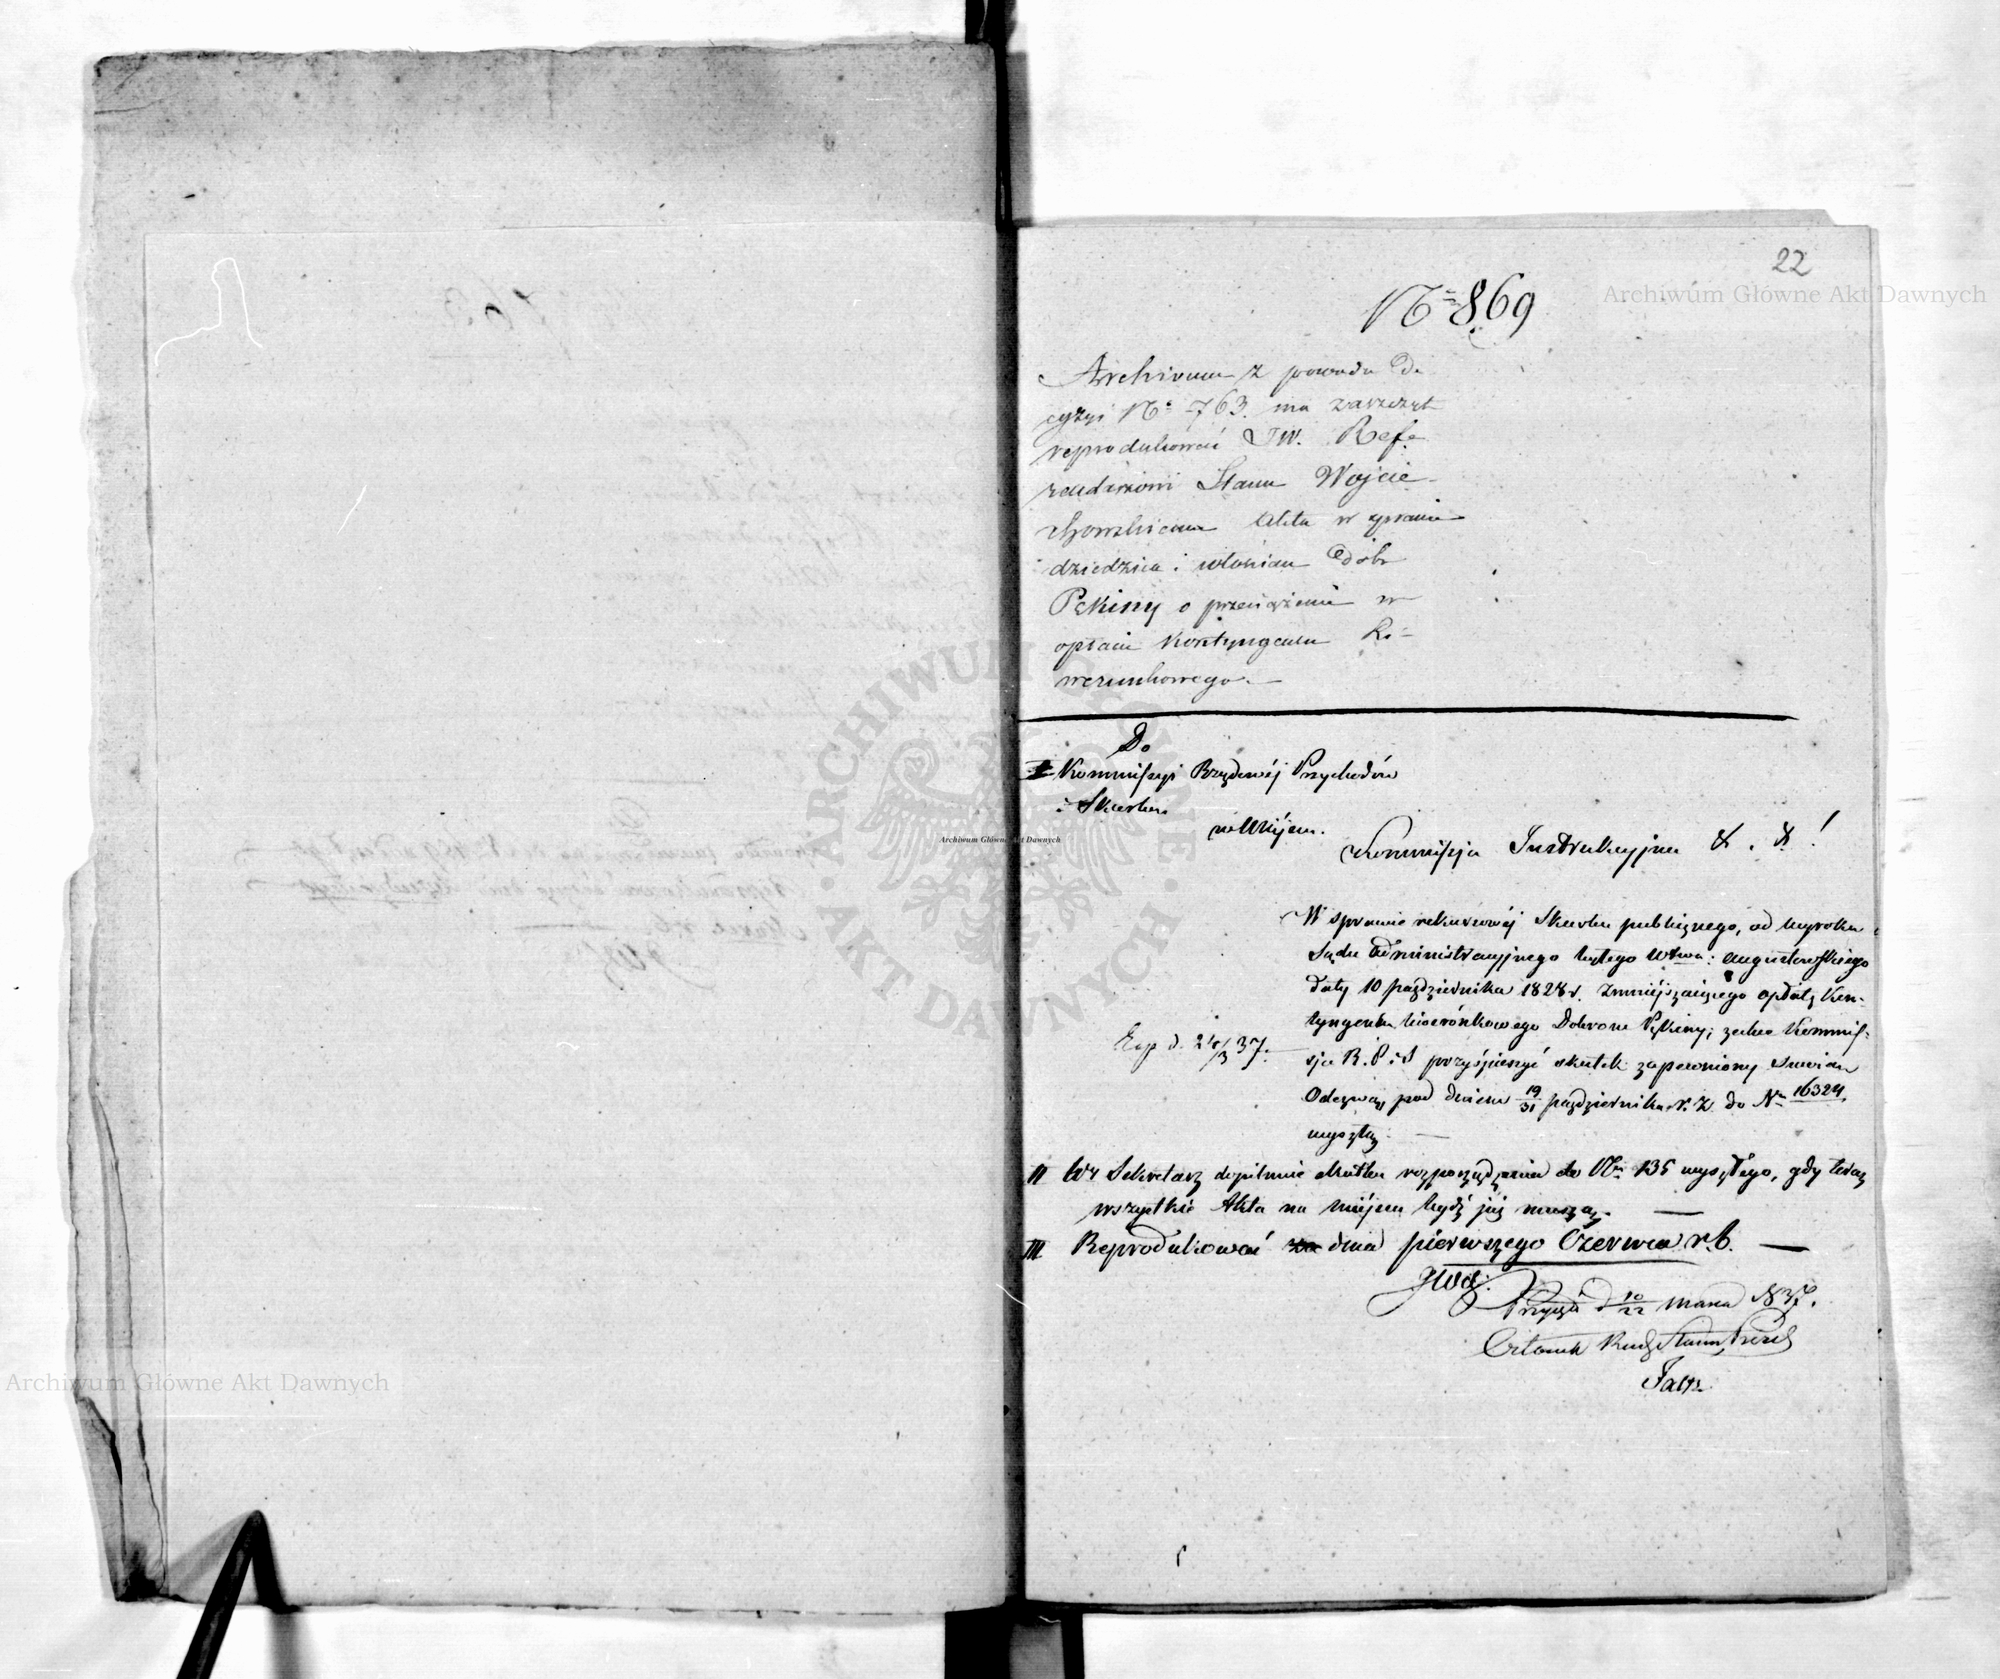 22
Archiwum Główne Akt Dawnych
No 869
Archivum z powodu De
cyzyi No 763. ma zaszczyt
reprodukować JW. Refe
rendarzowi Stanu Wojcie
chowskiemu Akta w sprawie
dziedzica i włościan Dóbr
Pękiny o przeciążenie w
opłacie Kontyngensu Li-
werunkowego.—
Do
I Kommissyi Rządowéj Przychodów
i Skarbu
w Miéjscu.
Kommissja Instrukcyjna & . & !
W sprawie rekursowéj Skarbu publicznego, od wyroku
Sądu Administracyjnego byłego Wdztwa: Augustowskiego
daty 10 października 1828 r. zmniejszaiącego opłatę Kon-
tyngensu liwerónkowego Dobrom Pękiny; zechce Kommis-
sja R. P. i S przyśpieszyć skutek zapewniony Swoian
Odezwą, pod dniem 19/31 października r. z. do No 16324.
wyszłą. —
Exp d. 24/3 37.
II Wr Sekretarz dopilnuie skutku rozporządzenia do No 135 wyszłego, gdy teraz
wszystkie Akta na miéjscu bydź już muszą. —
III Reprodukować dnia pierwszego Czerwca r. b. —
Przyjął d 10/22 marca 1837.
Członek Rady Stanu, Prezes
ARCHIWUM GŁÓWNE AKT DAWNYCH
Archiwum Główne Akt Dawnych
Archiwum Główne Akt Dawnych